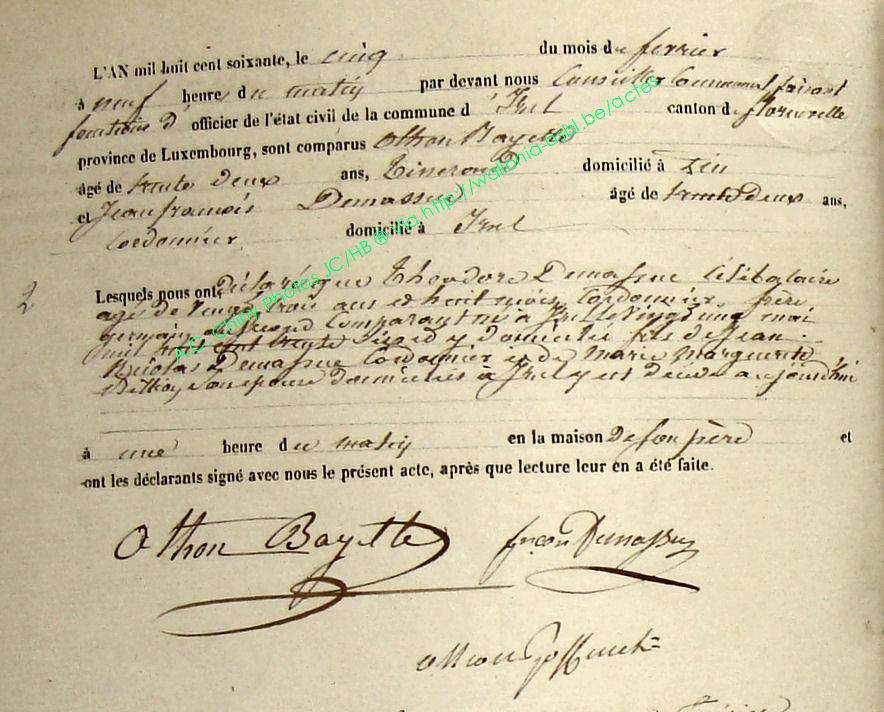 L'AN mil huit cent soixante, le cinq du mois de fevrier
à neuf heure du matin par devant nous Conseiller Communal faisant
fonctions d' officier de l'état civil de la commune d'Izel canton de florenville
province de Luxembourg, sont comparus Othon Bayette
âgé de trente deux ans, tisserand domicilié à
et Jean françois Demasse âgé de trente deux ans,
Cordonnier domicilié à Izel
2
Lesquels nous ont déclaré que Théodore Demasse Célibataire
agé de vingt trois ans et huit mois, Cordonnier, frère
germain du second Comparant né à Izel le vingt une mai
mil huit cent trente six et y domicilié fils de Jean
Nicolas Demasse Cordonnier et de Marie Marguerite
son épouse domiciliés à Izel y est décédé aujourd'hui
à une heure du matin en la maison de son père et
ont les déclarants signé avec nous le présent acte, après que lecture leur en a été faite.
Othon Bayette
frçois Demasse
Goffinet
A.C. Chiny Photos JC/HB @ via http://wallonia-asbl.be/actes